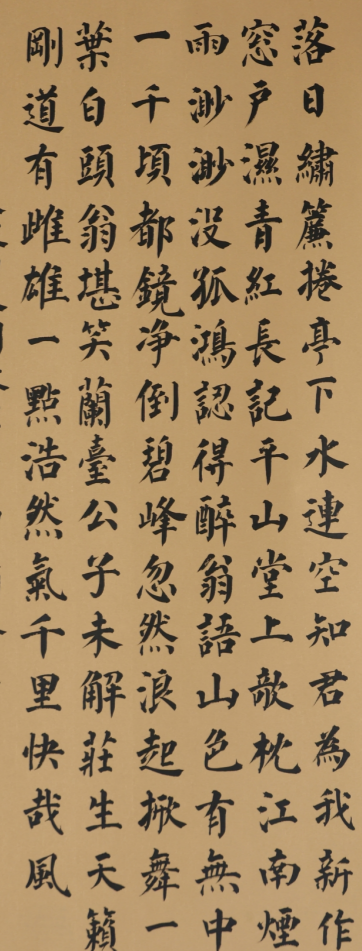 落日繡簾捲亭下水連空知君為我新作
窓戶濕青紅長記平山堂上欹枕江南煙
雨渺渺没孤鴻認得醉翁語山色有無中
一千頃都鏡净倒碧峰忽然浪起掀舞一
葉白頭翁堪笑蘭臺公子未解莊生天籟
剛道有雌雄一點浩然氣千里快哉風